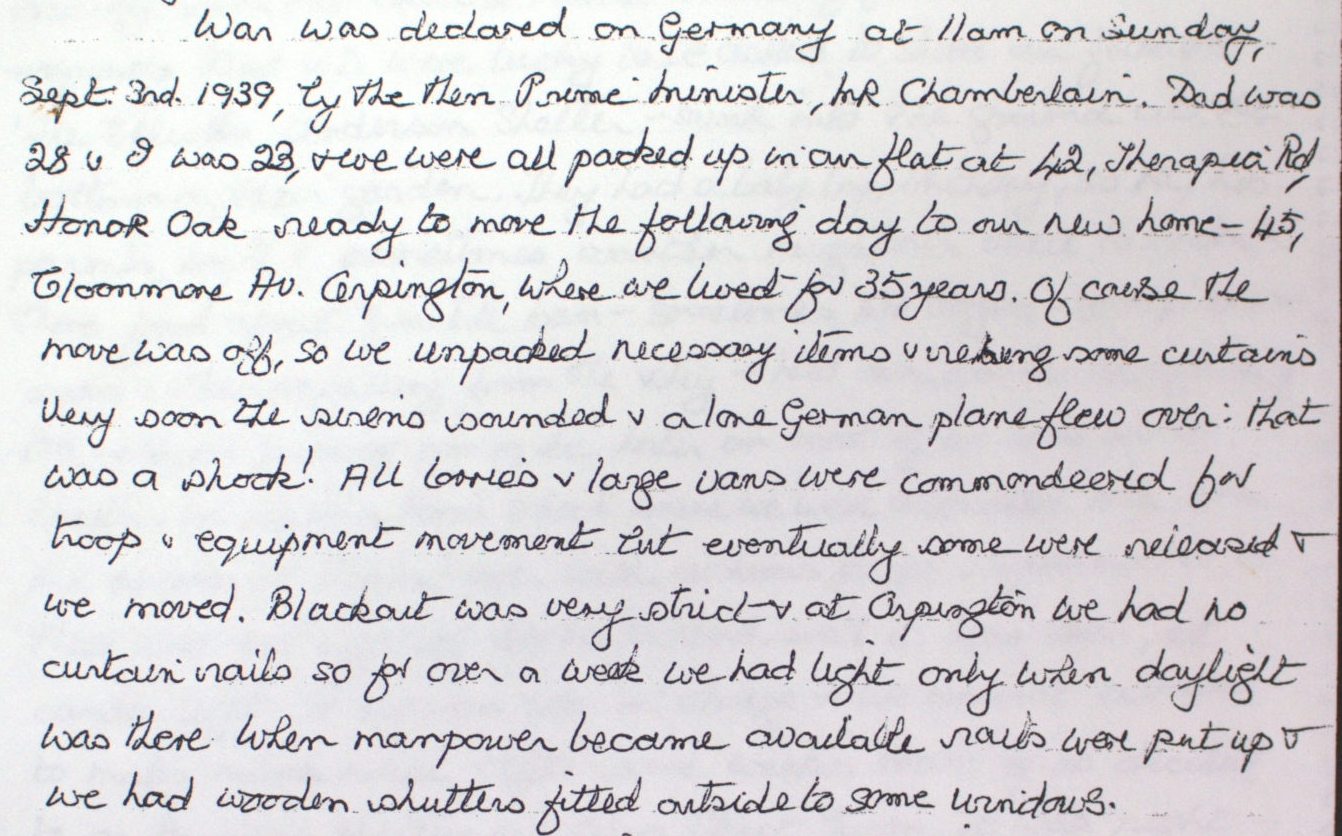 War was declared on Germany at 11am on Sunday,
Sept. 3rd. 1939, by the then Prime minister, MR Chamberlain. Dad was
28 & I was 23, & we were all packed up in our flat at 42, Therapia Rd,
Honor Oak ready to move the following day to our new home - 45,
Cloonmore Av. Orpington, where we lived for 35 years. Of cause the
move was off, so we unpacked necessary items & rehung some curtains
very soon the sirens sounded & a lone German plane flew over: that
was a shock! All lorries & large vans were commondeered for
troop & equipment movement but eventually some were released &
we moved. Blackout was very strict & at Orpington we had no
curtain rails so for over a week we had light only when daylight
was there when manpower became available rails were put up &
we had wooden shutters fitted outside to some windows.